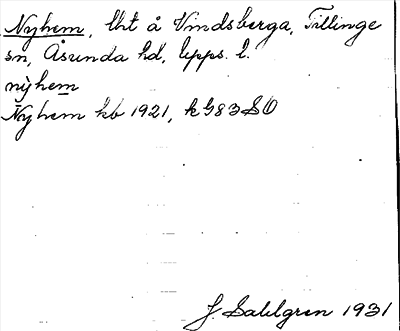 Nyhem, lht å Vindsberga, Tillinge
sn, Åsunda hd, Upps. l.
nỳhem
Nyhem kb 1921, k G83SO
J. Sahlgren 1931